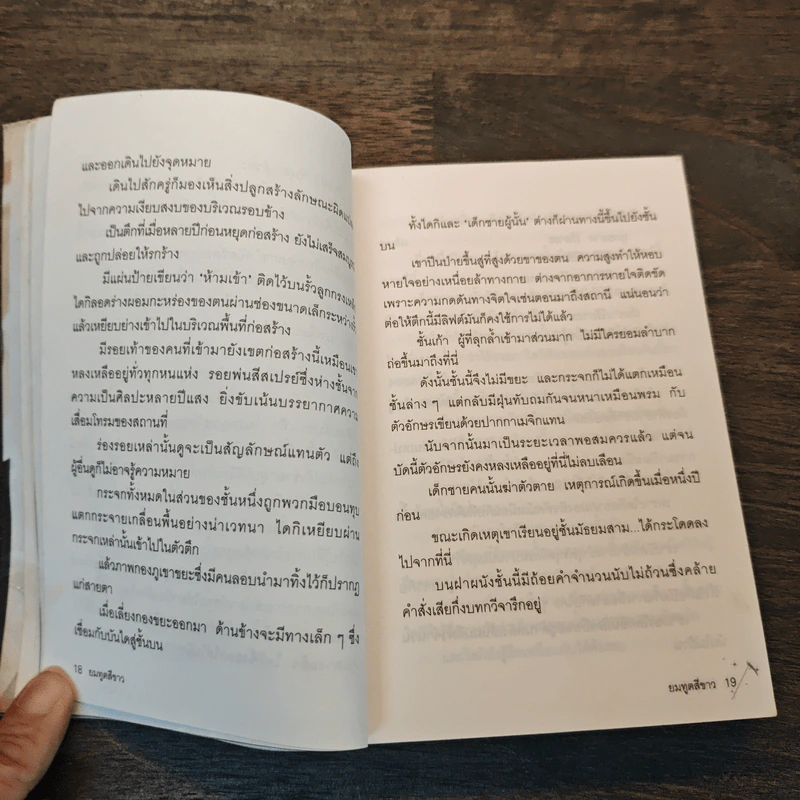 และออกเดินไปยังจุดหมาย
เดินไปสักครู่ก็มองเห็นสิ่งปลูกสร้างลักษณะผิดแปลก
ไปจากความเงียบสงบของบริเวณรอบข้าง
เป็นตึกที่เมื่อหลายปีก่อนหยุดก่อสร้าง ยังไม่เสร็จสมบูรณ์
และถูกปล่อยให้รกร้าง
มีแผ่นป้ายเขียนว่า 'ห้ามเข้า' ติดไว้บนรั้วลูกกรงเหล็ก
ไดกิลอดร่างผอมกะหร่องของตนผ่านช่องขนาดเล็กระหว่างรั้ว
แล้วเหยียบย่างเข้าไปในบริเวณพื้นที่ก่อสร้าง
มีรอยเท้าของคนที่เข้ามายังเขตก่อสร้างนี้เหมือน
หลงเหลืออยู่ทั่วทุกหนแห่ง รอยพ่นสีสเปรย์ซึ่งห่างชั้นจาก
ความเป็นศิลปะหลายปีแสง ยิ่งขับเน้นบรรยากาศความ
เสื่อมโทรมของสถานที่
ร่องรอยเหล่านั้นดูจะเป็นสัญลักษณ์แทนตัว แต่ถึง
ผู้อื่นดูก็ไม่อาจรู้ความหมาย
กระจกทั้งหมดในส่วนของชั้นหนึ่งถูกพวกมือบอนทุบ
แตกกระจายเกลื่อนพื้นอย่างน่าเวทนา ไดกิเหยียบผ่าน
กระจกเหล่านั้นเข้าไปในตัวตึก
แล้วภาพกองภูเขาขยะซึ่งมีคนลอบนำมาทิ้งไว้ก็ปรากฏ
แก่สายตา
เมื่อเลี่ยงกองขยะออกมา ด้านข้างจะมีทางเล็ก ๆ ซึ่ง
เชื่อมกับบันไดสู่ชั้นบน
18 ยมทูตสีขาว
ทั้งไดกิและ 'เด็กชายผู้นั้น' ต่างก็ผ่านทางนี้ขึ้นไปยังชั้น
บน
เขาปีนป่ายขึ้นสู่ที่สูงด้วยขาของตน ความสูงทำให้หอบ
หายใจอย่างเหนื่อยล้าทางกาย ต่างจากอาการหายใจติดขัด
เพราะความกดดันทางจิตใจเช่นตอนมาถึงสถานี แน่นอนว่า
ต่อให้ตึกนี้มีลิฟต์มันก็คงใช้การไม่ได้แล้ว
ชั้นเก้า ผู้ที่ลุกล้ำเข้ามาส่วนมาก ไม่มีใครยอมลำบาก
ถ่อขึ้นมาถึงที่นี่
ดังนั้นชั้นนี้จึงไม่มีขยะ และกระจกก็ไม่ได้แตกเหมือน
ชั้นล่าง ๆ แต่กลับมีฝุ่นทับถมกันจนหนาเหมือนพรม กับ
ตัวอักษรเขียนด้วยปากกาเมจิกแทน
นับจากนั้นมาเป็นระยะเวลาพอสมควรแล้ว แต่จน
บัดนี้ตัวอักษรยังคงหลงเหลืออยู่ที่นี่ไม่ลบเลือน
เด็กชายคนนั้นฆ่าตัวตาย เหตุการณ์เกิดขึ้นเมื่อหนึ่งปี
ก่อน
ขณะเกิดเหตุเขาเรียนอยู่ชั้นมัธยมสาม...ได้กระโดดลง
ไปจากที่นี่
บนฝาผนังชั้นนี้มีถ้อยคำจำนวนนับไม่ถ้วนซึ่งคล้าย
คำสั่งเสียกึ่งบทกวีจารึกอยู่
ยมทูตสีขาว 19